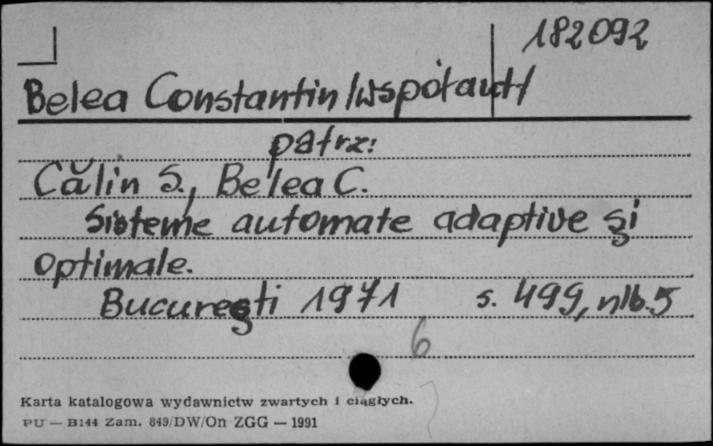 182092
Belea Constantin /współaut/
patrz:
Călin S., Belea C.
Sisteme automate adaptive şi
optimale.
Bucureşti 1971 s. 499, nlb. 5
6
Karta katalogowa wydawnictw zwartych i ciągłych.
PU — B144 Zam. 849/DW/On ZGG — 1991